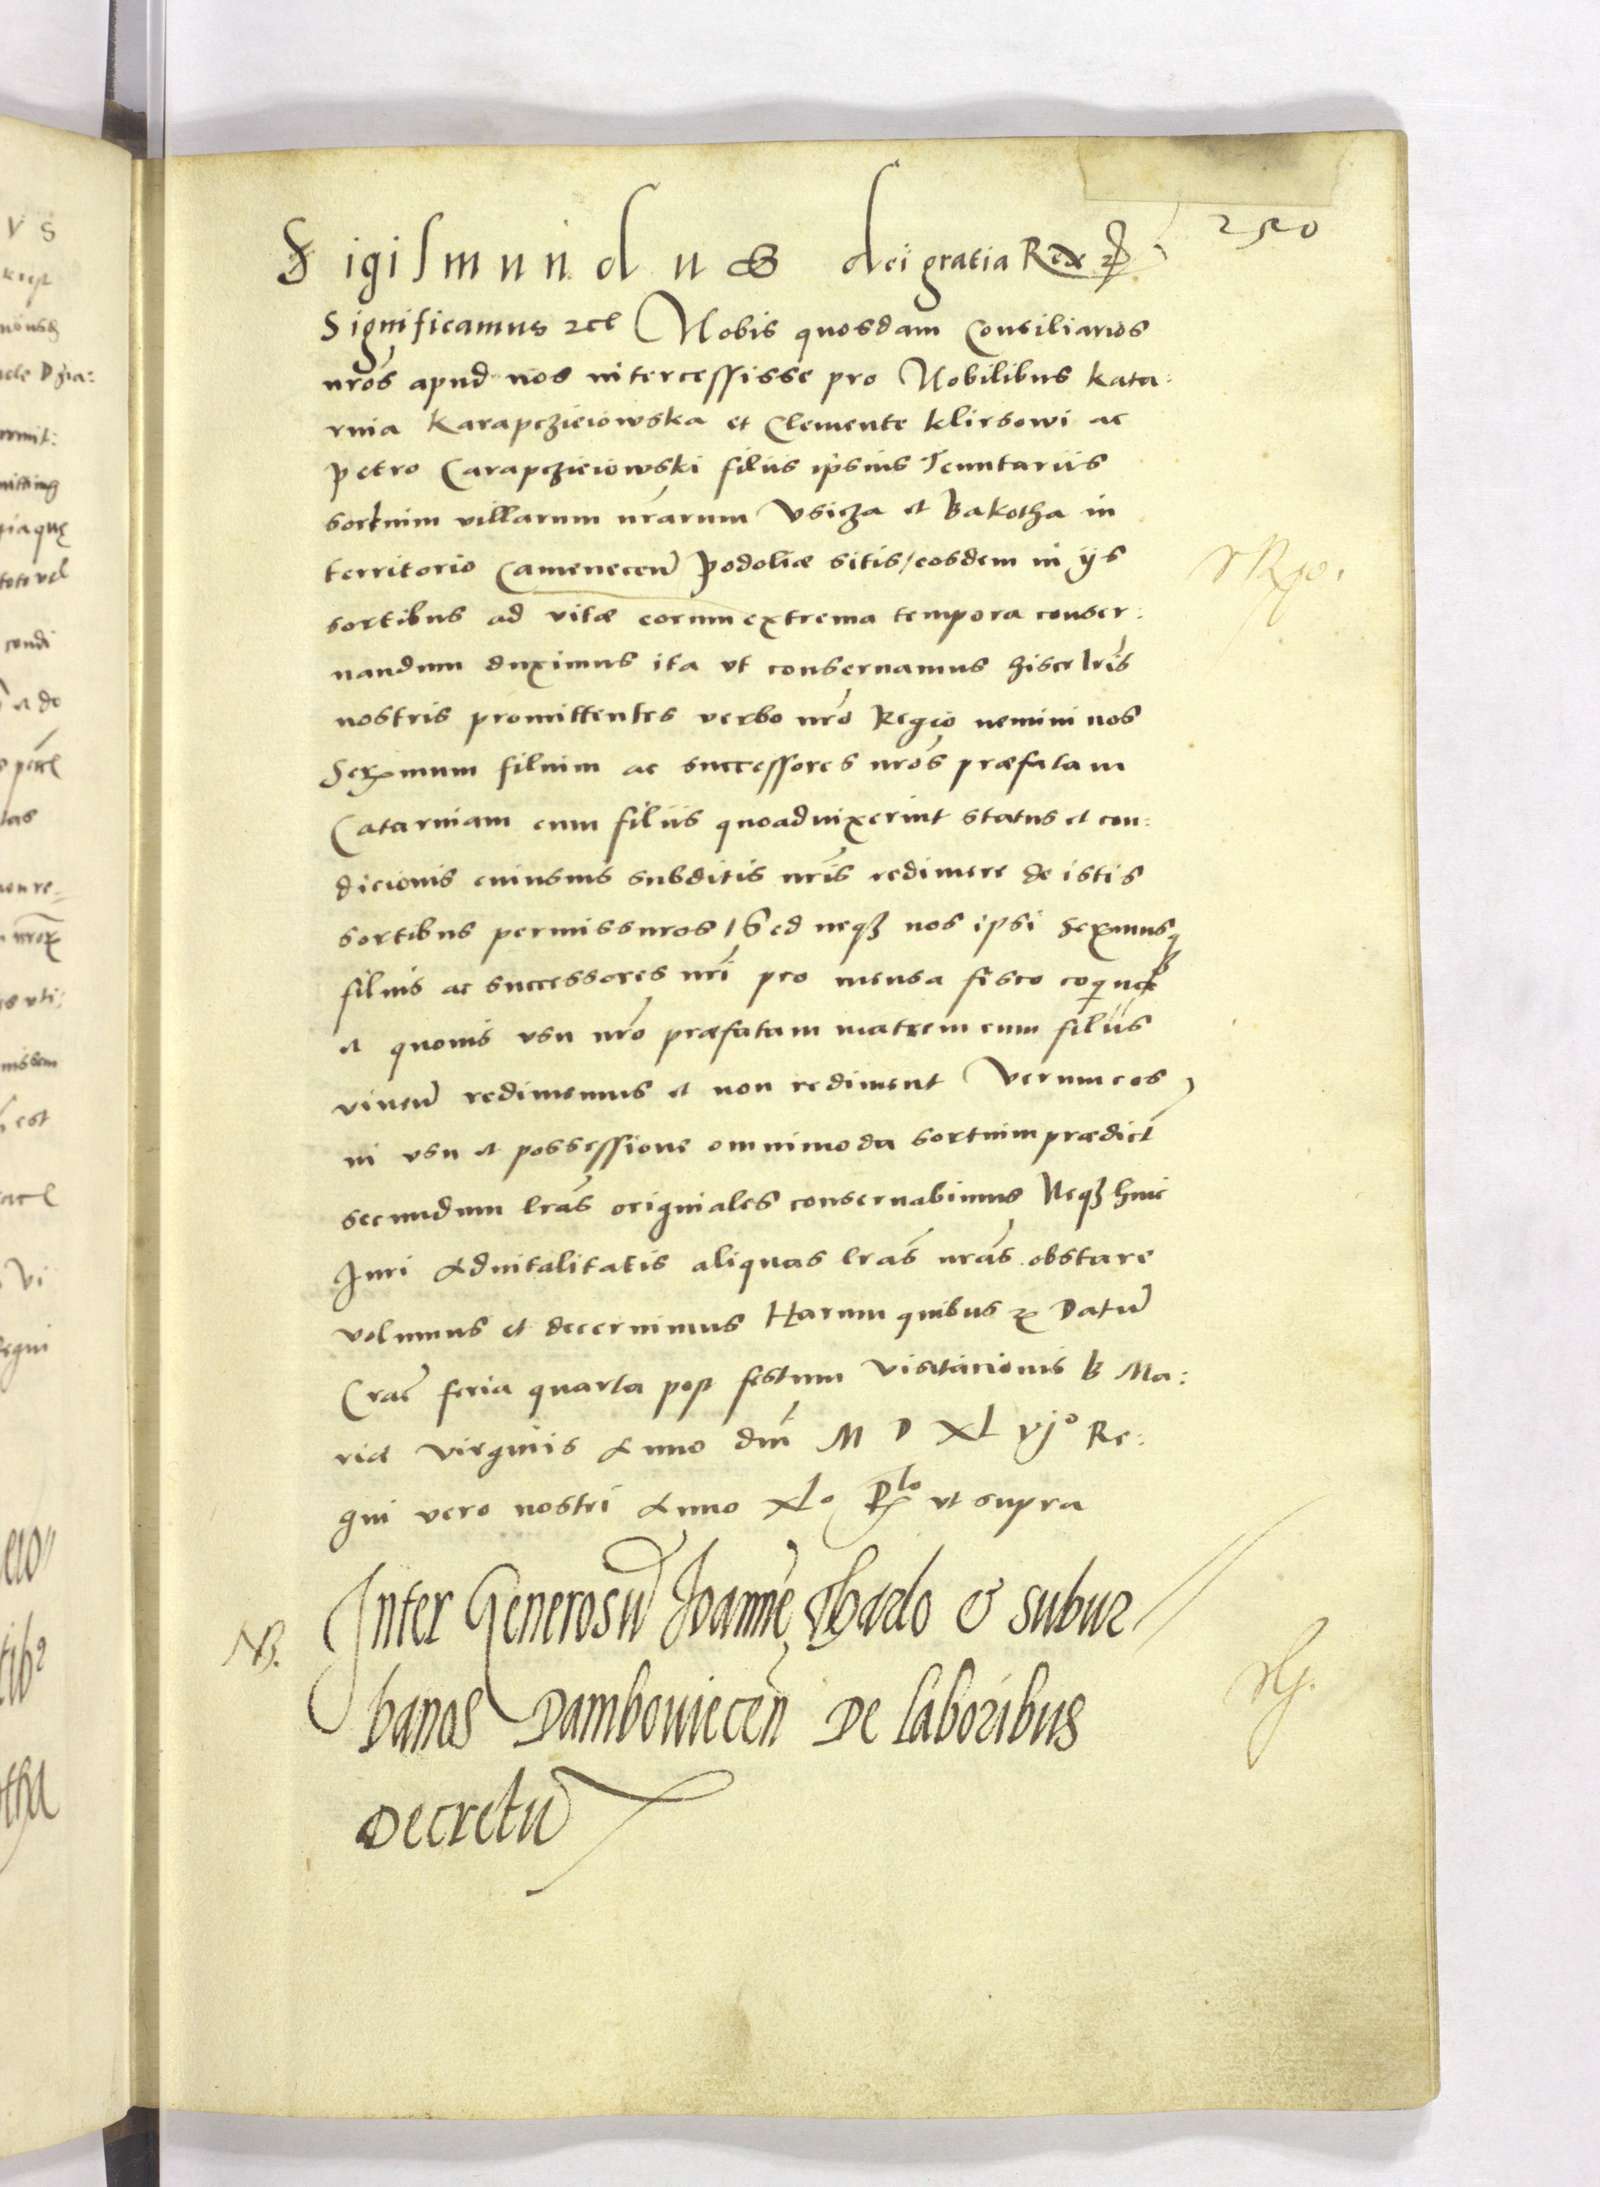 250
Sigismundus dei gratia Rex
Significamus Nobis quosdam Consiliarios
nros apud nos intercessisse pro Nobilibus Kata:
rina Karapczieiowska et Clemente klirsowi ac
petro Carapczieiowski filiis ipsius Tenutariis
sortium villarum nrarum Usicza et Bakotha in
territorio Camenecen Podoliæ sitis / eosdem in ijs
sortibus ad vitæ eorum extrema tempora conser:
uandum duximus ita vt conseruamus hisce lris
nostris promittentes verbo nro Regio nemini nos
Sermum filium ac successores nros præfatam
Catarinam cum filiis quoad uixerint status et con:
dicionis cuiusuis subditis nris redimere de istis
sortibus permissuros / Sed neqз nos ipsi Sermusqз
filius ac successores nri pro mensa fisco
et quouis vsu nro præfatam matrem cum filiis
viuen redimemus et non rediment Verum eos
in vsu et possessione omnimoda sortium prædict
secundum lras originales conseruabimus Neqз huic
Juri aduitalitatis aliquas lras nras obstare
volumus et decernimus Harum quibus Datum
Crac feria quarta post festum Visitacionis B Ma:
riæ virginis Anno dni M D XL vjo Re:
gni vero nostri Anno XLo Rlo ut supra
NB.
Inter Generosu Joanne Zbardo & subur
banos Dambouiecen De laboribus
Decretu